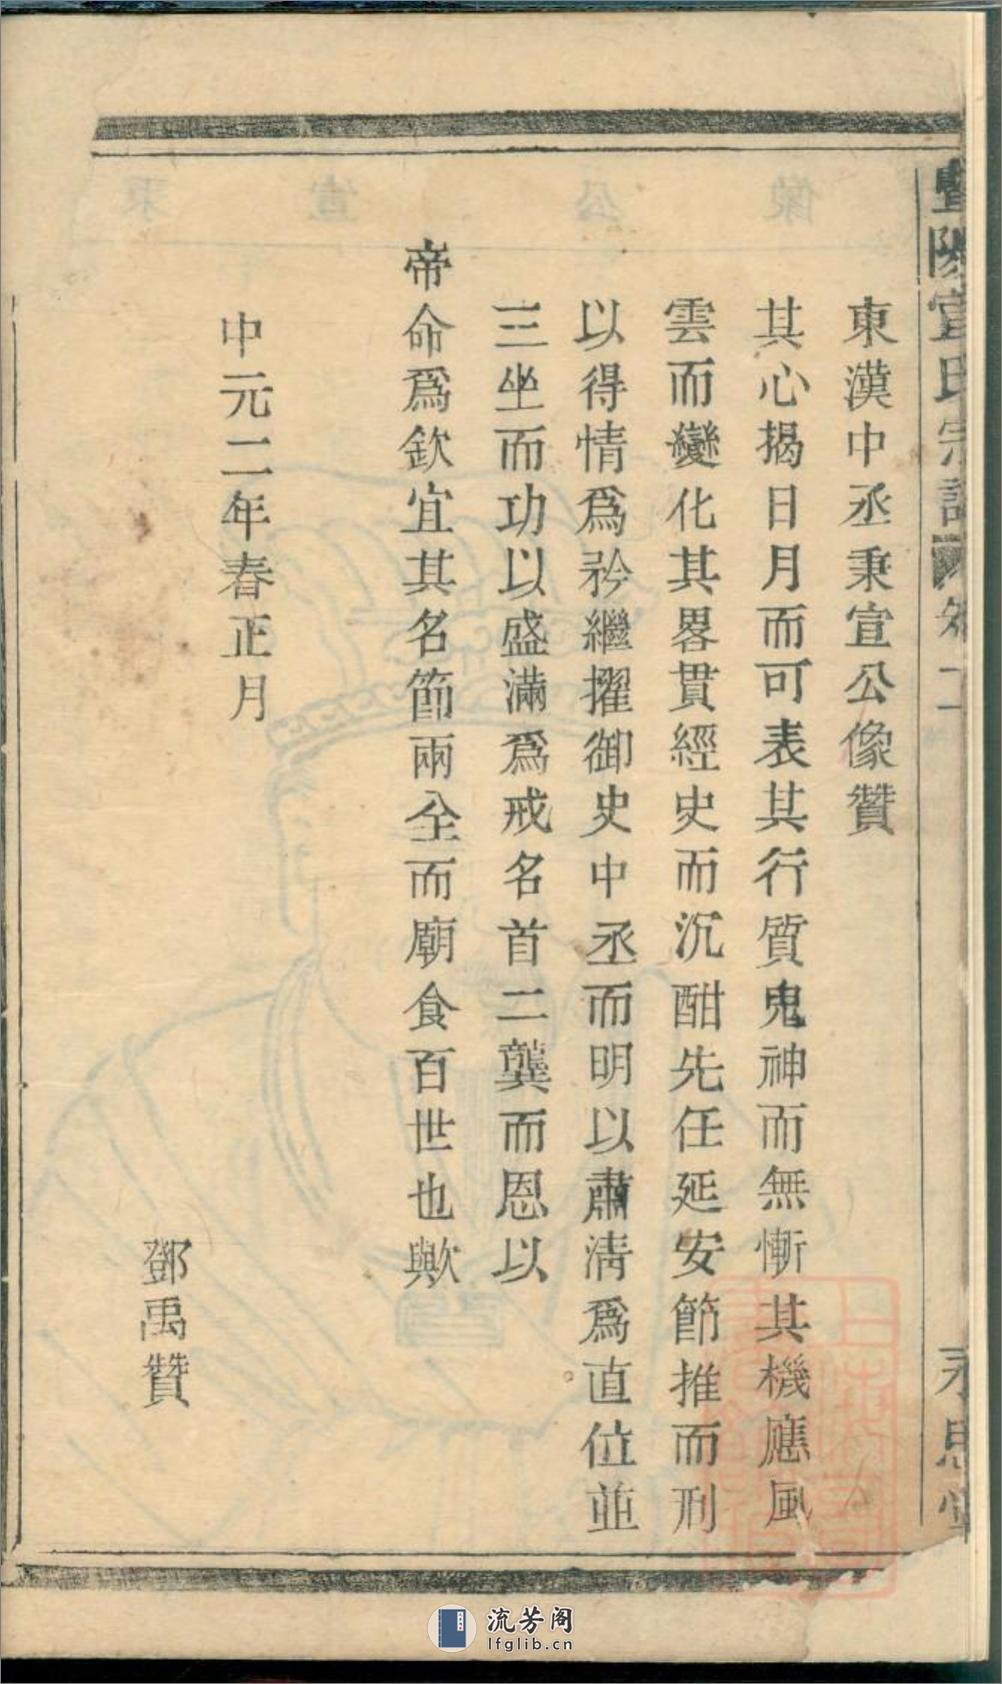 暨陽宣氏宗譜 卷二 永思堂
東漢中丞秉宣公像贊
其心揭日月而可表其行質鬼神而無慚其機應風
雲而變化其畧貫經史而沉酣先任延安節推而刑
以得情爲矜繼擢御史中丞而明以肅淸爲直位並
三坐而功以盛滿爲戒名首二龔而恩以
帝命爲欽宜其名節兩全而廟食百世也歟
中元二年春正月
鄧禹贊
流芳阁
lfglib.cn